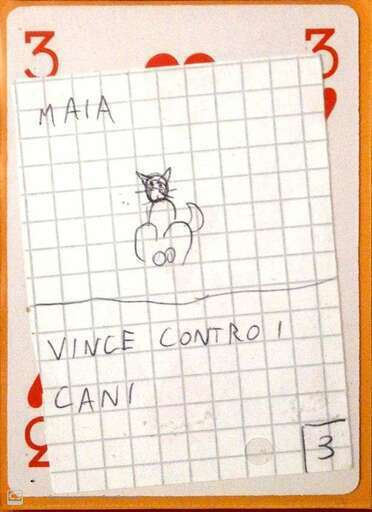 3 3
MAIA
VINCE CONTRO I
CANI
3
3